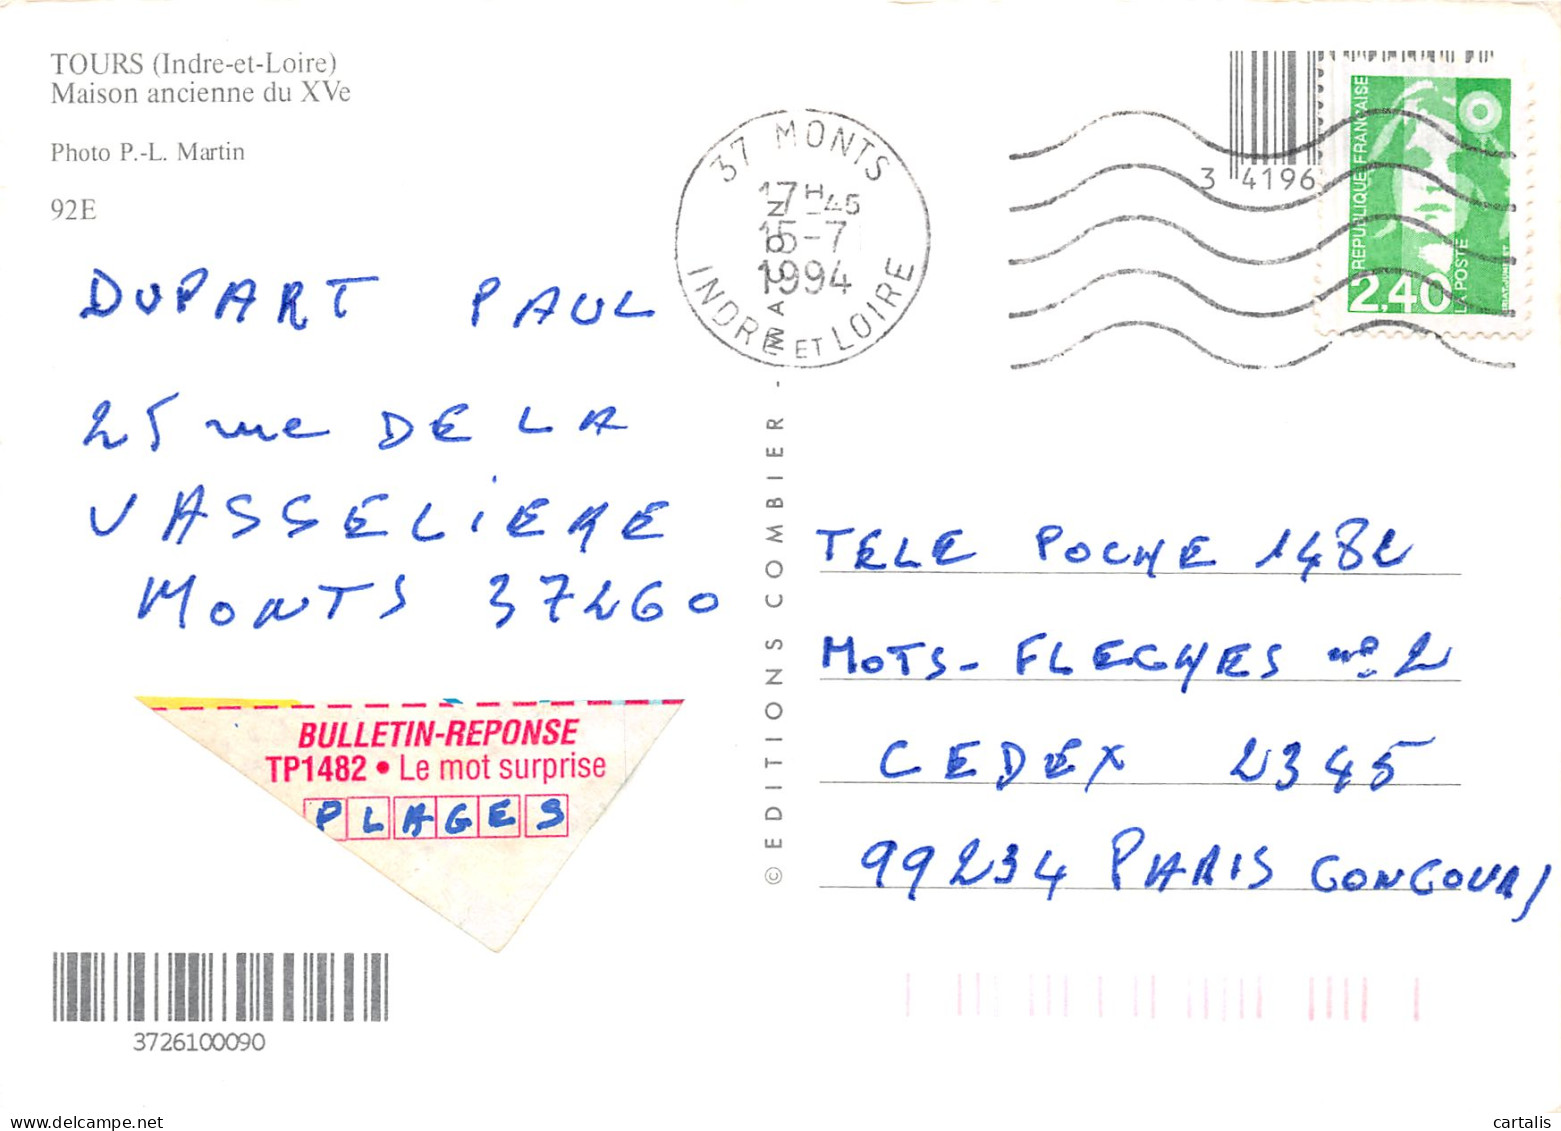 TOURS (Indre-et-Loire)
Maison ancienne du XVe
Photo P.-L. Martin
92E
37 MONTS
17H45
15-7
1994
INDRE ET LOIRE
3 4196
REPUBLIQUE FRANÇAISE
LA POSTE
2,40
DUPART PAUL
25 rue DE LA
VASSELIERE
MONTS 37260
BULLETIN-REPONSE
TP1482 • Le mot surprise
PLAGES
© EDITIONS COMBIER - MACON
TELE POCHE 1482
MOTS-FLECHES nº 2
CEDEX 2345
99234 PARIS CONCOURS
3726100090
cartalis